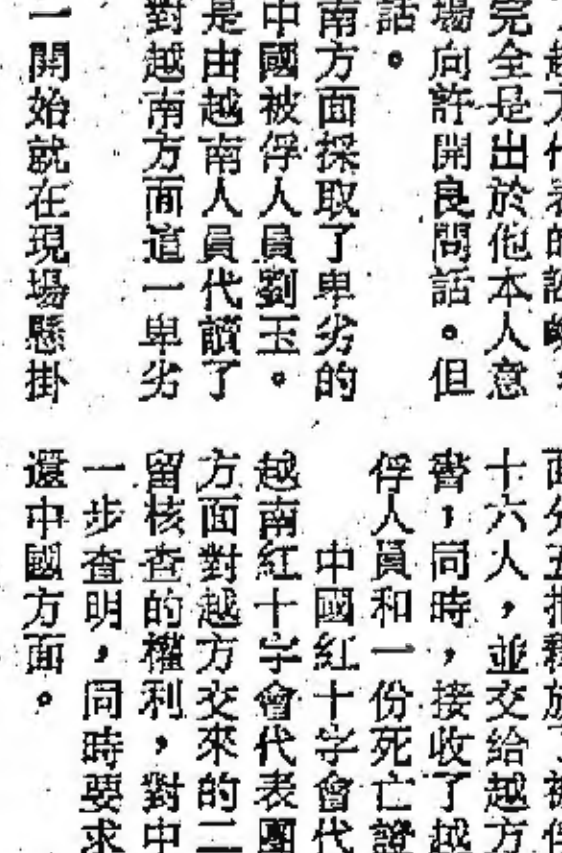 越方代表的
完全是出於他本人意
場向許開良問話。但
話。
南方面採取了卑劣的
中國被俘人員劉玉。
是由越南人員代讀了
對越南方面這一卑劣
一開始就在現場懸掛
面分五批釋放了被俘
十六人,並交給越方
書;同時,接收了越
俘人員和一份死亡證
中國紅十字會代
越南紅十字會代表團
方面對越方交來的二
留核查的權利,對中
一步查明,同時要求
還中國方面。